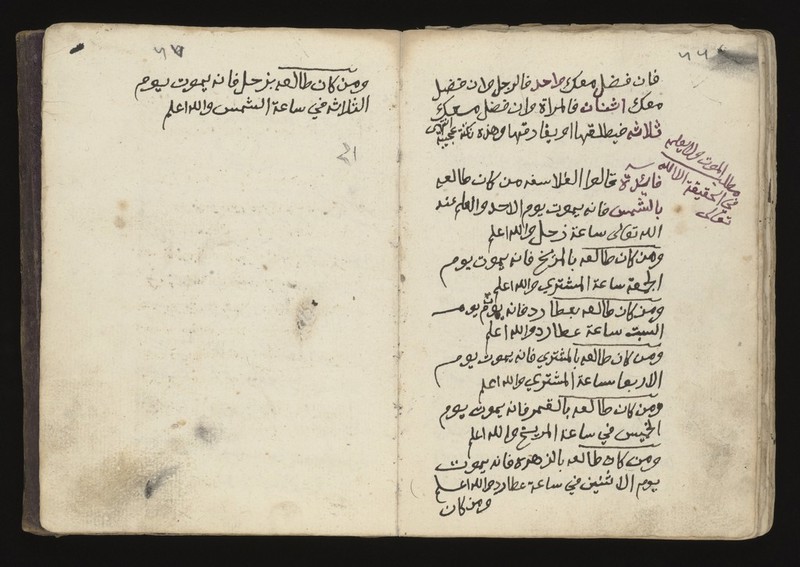 ٦٦
فان فضل معك واحد فالرجل وان فضل
معك اثنان فالمراة وان فضل معك
ثلاثه فيطلقها او يفارقها وهذه نكتة عجيبة
مطلب الموت ولا يعلمه
في الحقيقة الا الله
تعالى
فائدة قالوا الفلاسفه من كان طالعه
بالشمس فانه يموت يوم الاحد والعلم عند
الله تعالى ساعة زحل والله اعلم
ومن كان طالعه بالمريخ فانه يموت يوم
الجمعة ساعة المشتري والله اعلم
ومن كان طالعه بعطارد فانه يموت يوم
السبت ساعة عطارد والله اعلم
ومن كان طالعه بالمشتري فانه يموت يوم
الاربعا ساعة المشتري والله اعلم
ومن كان طالعه بالقمر فانه يموت يوم
الخميس في ساعة المريخ والله اعلم
ومن كان طالعه بالزهره فانه يموت
يوم الاثنين في ساعة عطارد والله اعلم
ومن كان
٦٧
ومن كان طالعه بزحل فانه يموت يوم
الثلاثه في ساعة الشمس والله اعلم